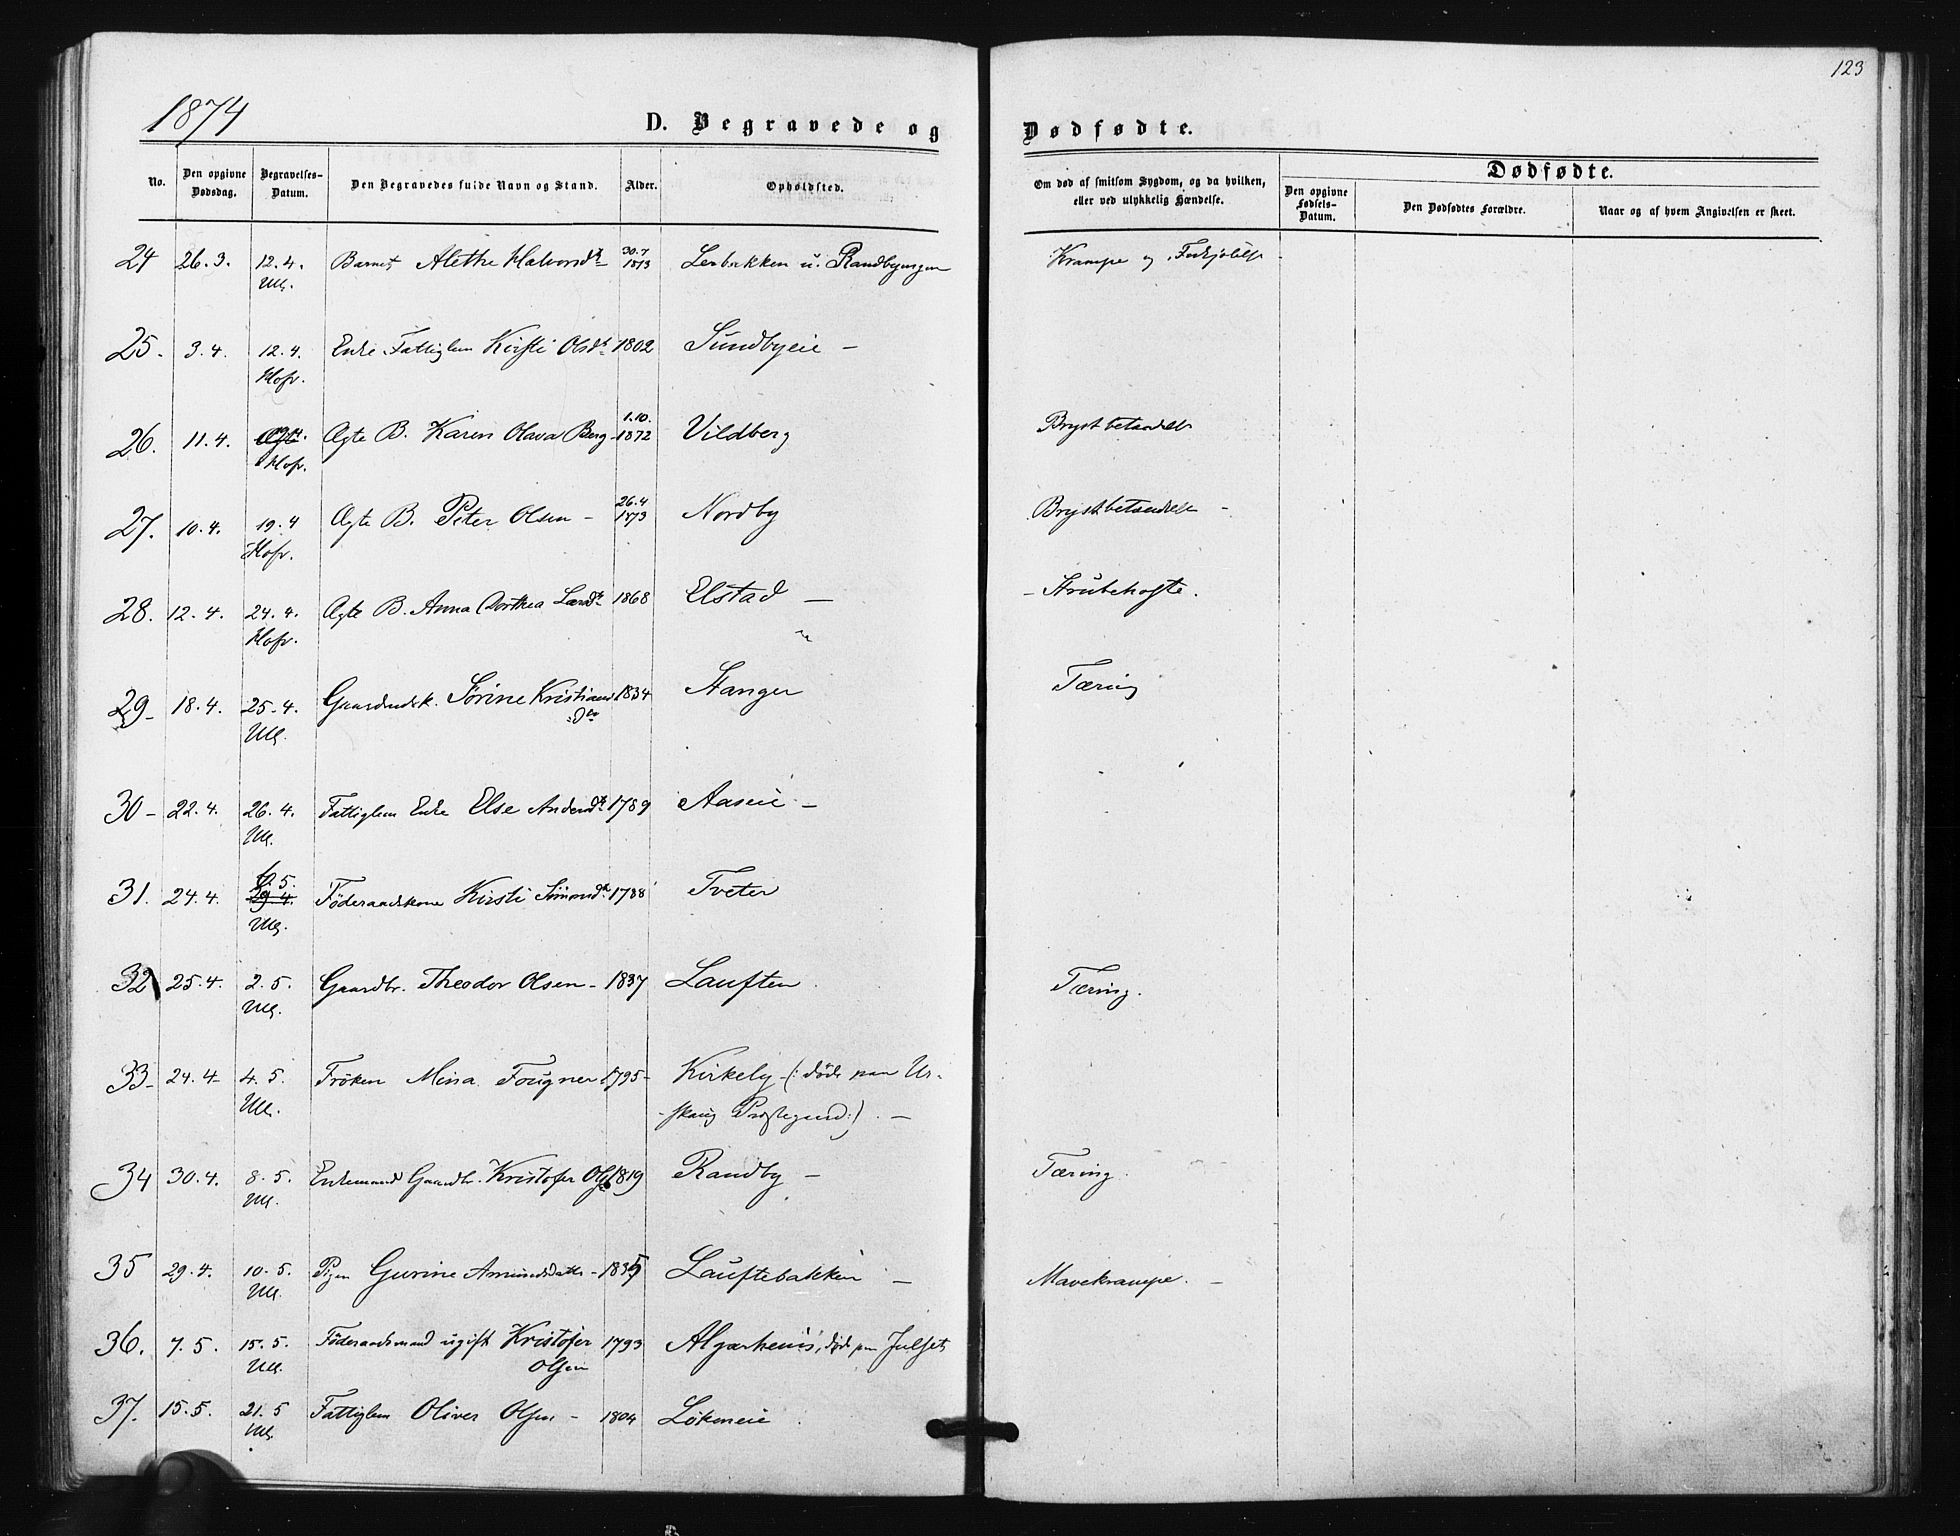 123
1874
D. Begravede og Dødfødte.
No. Den opgivne Dødsdag. Begravelses-Datum. Den Begravedes fulde Navn og Stand. Alder. Opholdsted. Om død af smitsom Sygdom, og da hvilken, eller ved ulykkelig Hændelse.
Dødfødte.
Den opgivne Fødsels-Datum. Den Dødfødtes Forældre. Naar og af hvem Angivelsen er skeet.
24 26.3. 12.4. Barnet Alethe Halvorsdt. 30.7 1873 Lerbakken u. Randbyengen Krampe og
Ull.
25. 3.4. 12.4. Enke Fattiglem Kirsti Olsdt 1802 Sundbyeie –
Hofv.
26. 11.4. Ægte B. Karen Olava Berg 1.10. 1872 Vildberg Brystbetændelse
Hofv.
27. 10.4. 19.4 Ægte B. Peter Olsen – 26.4 1873 Nordby Brystbetændelse –
Hofv.
28. 12.4. 24.4. Ægte B. Anna Dorthea Larsdt 1868 Elstad – – Strubehoste.
Hofv.
29– 18.4. 25.4. Sørine Kristians 1834 Stanger Tæring
Ull. Dtr
30– 22.4. 26.4. Fattiglem Enke Else Andersdt 1789 Aaseie –
Ull.
31. 24.4. 6.5. 29.4. Föderaadskone Kirsti Simensdt 1788 Tveter
Ull.
32 25.4. 2.5. Gaardbr. Theodor Olsen – 1837 Lauften Tæring.
Ull.
33– 24.4– 4.5. Fröken Mina Fougner 1795– Kirkeby (: døde paa Ur-
Ull. -skoug Præstegaard:) . –
34 30.4. 8.5. Enkemand Gaardbr. Kristofer Ols 1819 Randby – Tæring.
Ull.
35 29.4. 10.5. Pigen Gurine Amundsdatter – 1835 Lauftebakken – Mavekrampe. –
Ull.
36. 7.5. 15.5. Föderaadsmand ugift Kristofer 1793 Algarheim, død paa Julset
Ull. Olsen
37. 15.5. 21.5 Fattiglem Oliver Olsen – 1804 Lökeneie
Ull.